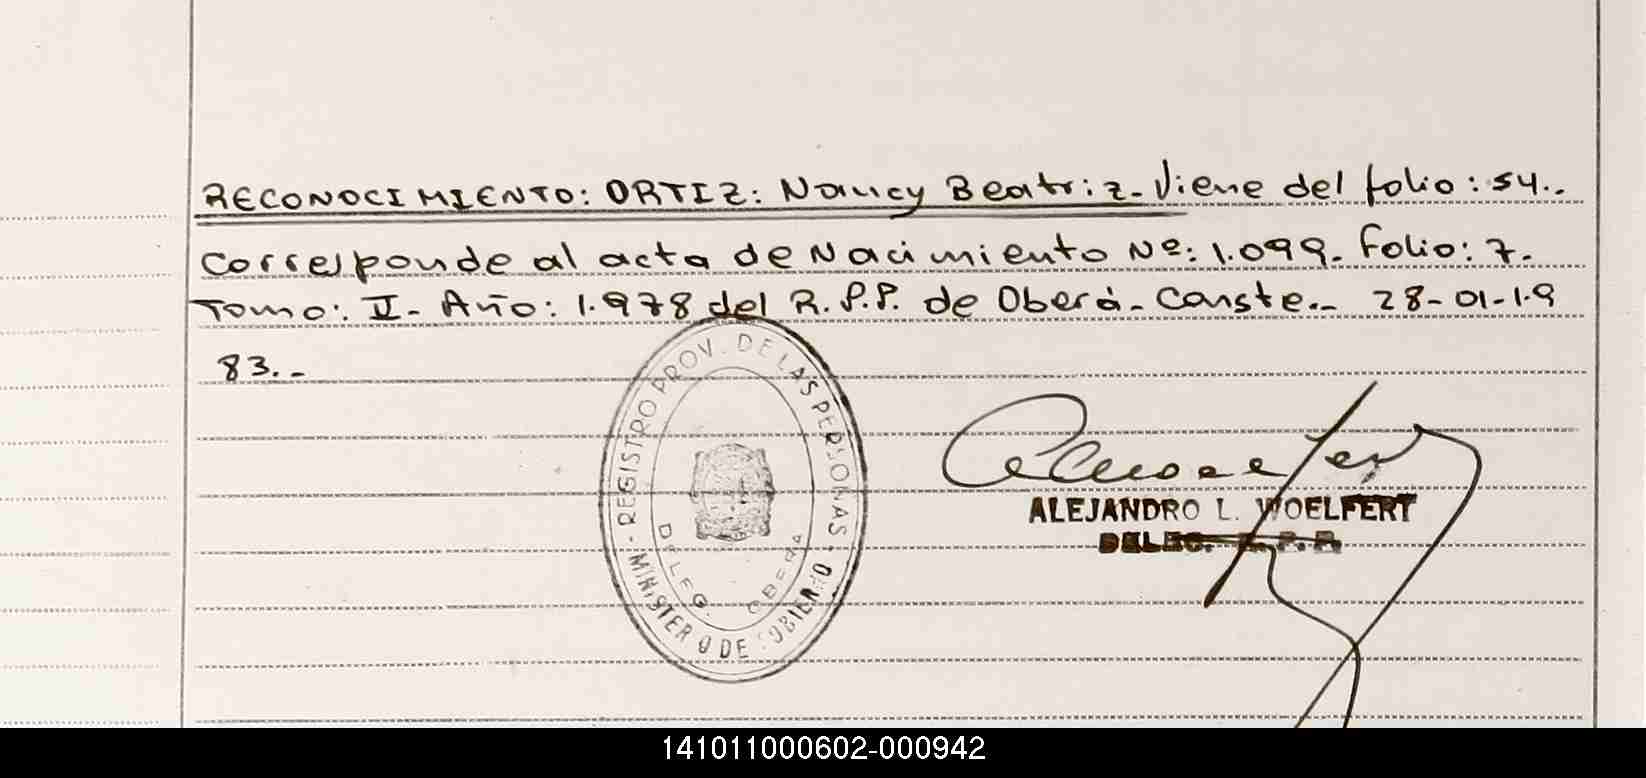 RECONOCIMIENTO: ORTIZ: Nancy Beatriz._ Viene del folio: 54._
Corresponde al acta de Nacimiento Nº: 1.099. Folio: 7.
Tomo: II. Año: 1.978 del R.P.P. de Oberá. Conste._ 28-01-19
83._
REGISTRO PROV. DE LAS PERSONAS
MINISTERIO DE GOBIERNO
DELEG. OBERA
ALEJANDRO L. WOELFERT
DELEG. R. P. P.
141011000602-000942